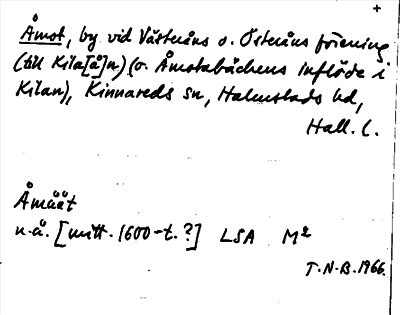 +
Åmot, by vid Västeråns o. Österåns förening
(till Kila[å]n) (o. Åmotabäckens inflöde i
Kilan), Kinnareds sn, Halmstads hd,
Hall. l.
Åmäät
u.å. [mitt. 1600-t.?] LSA M²
T.N-B. 1966.